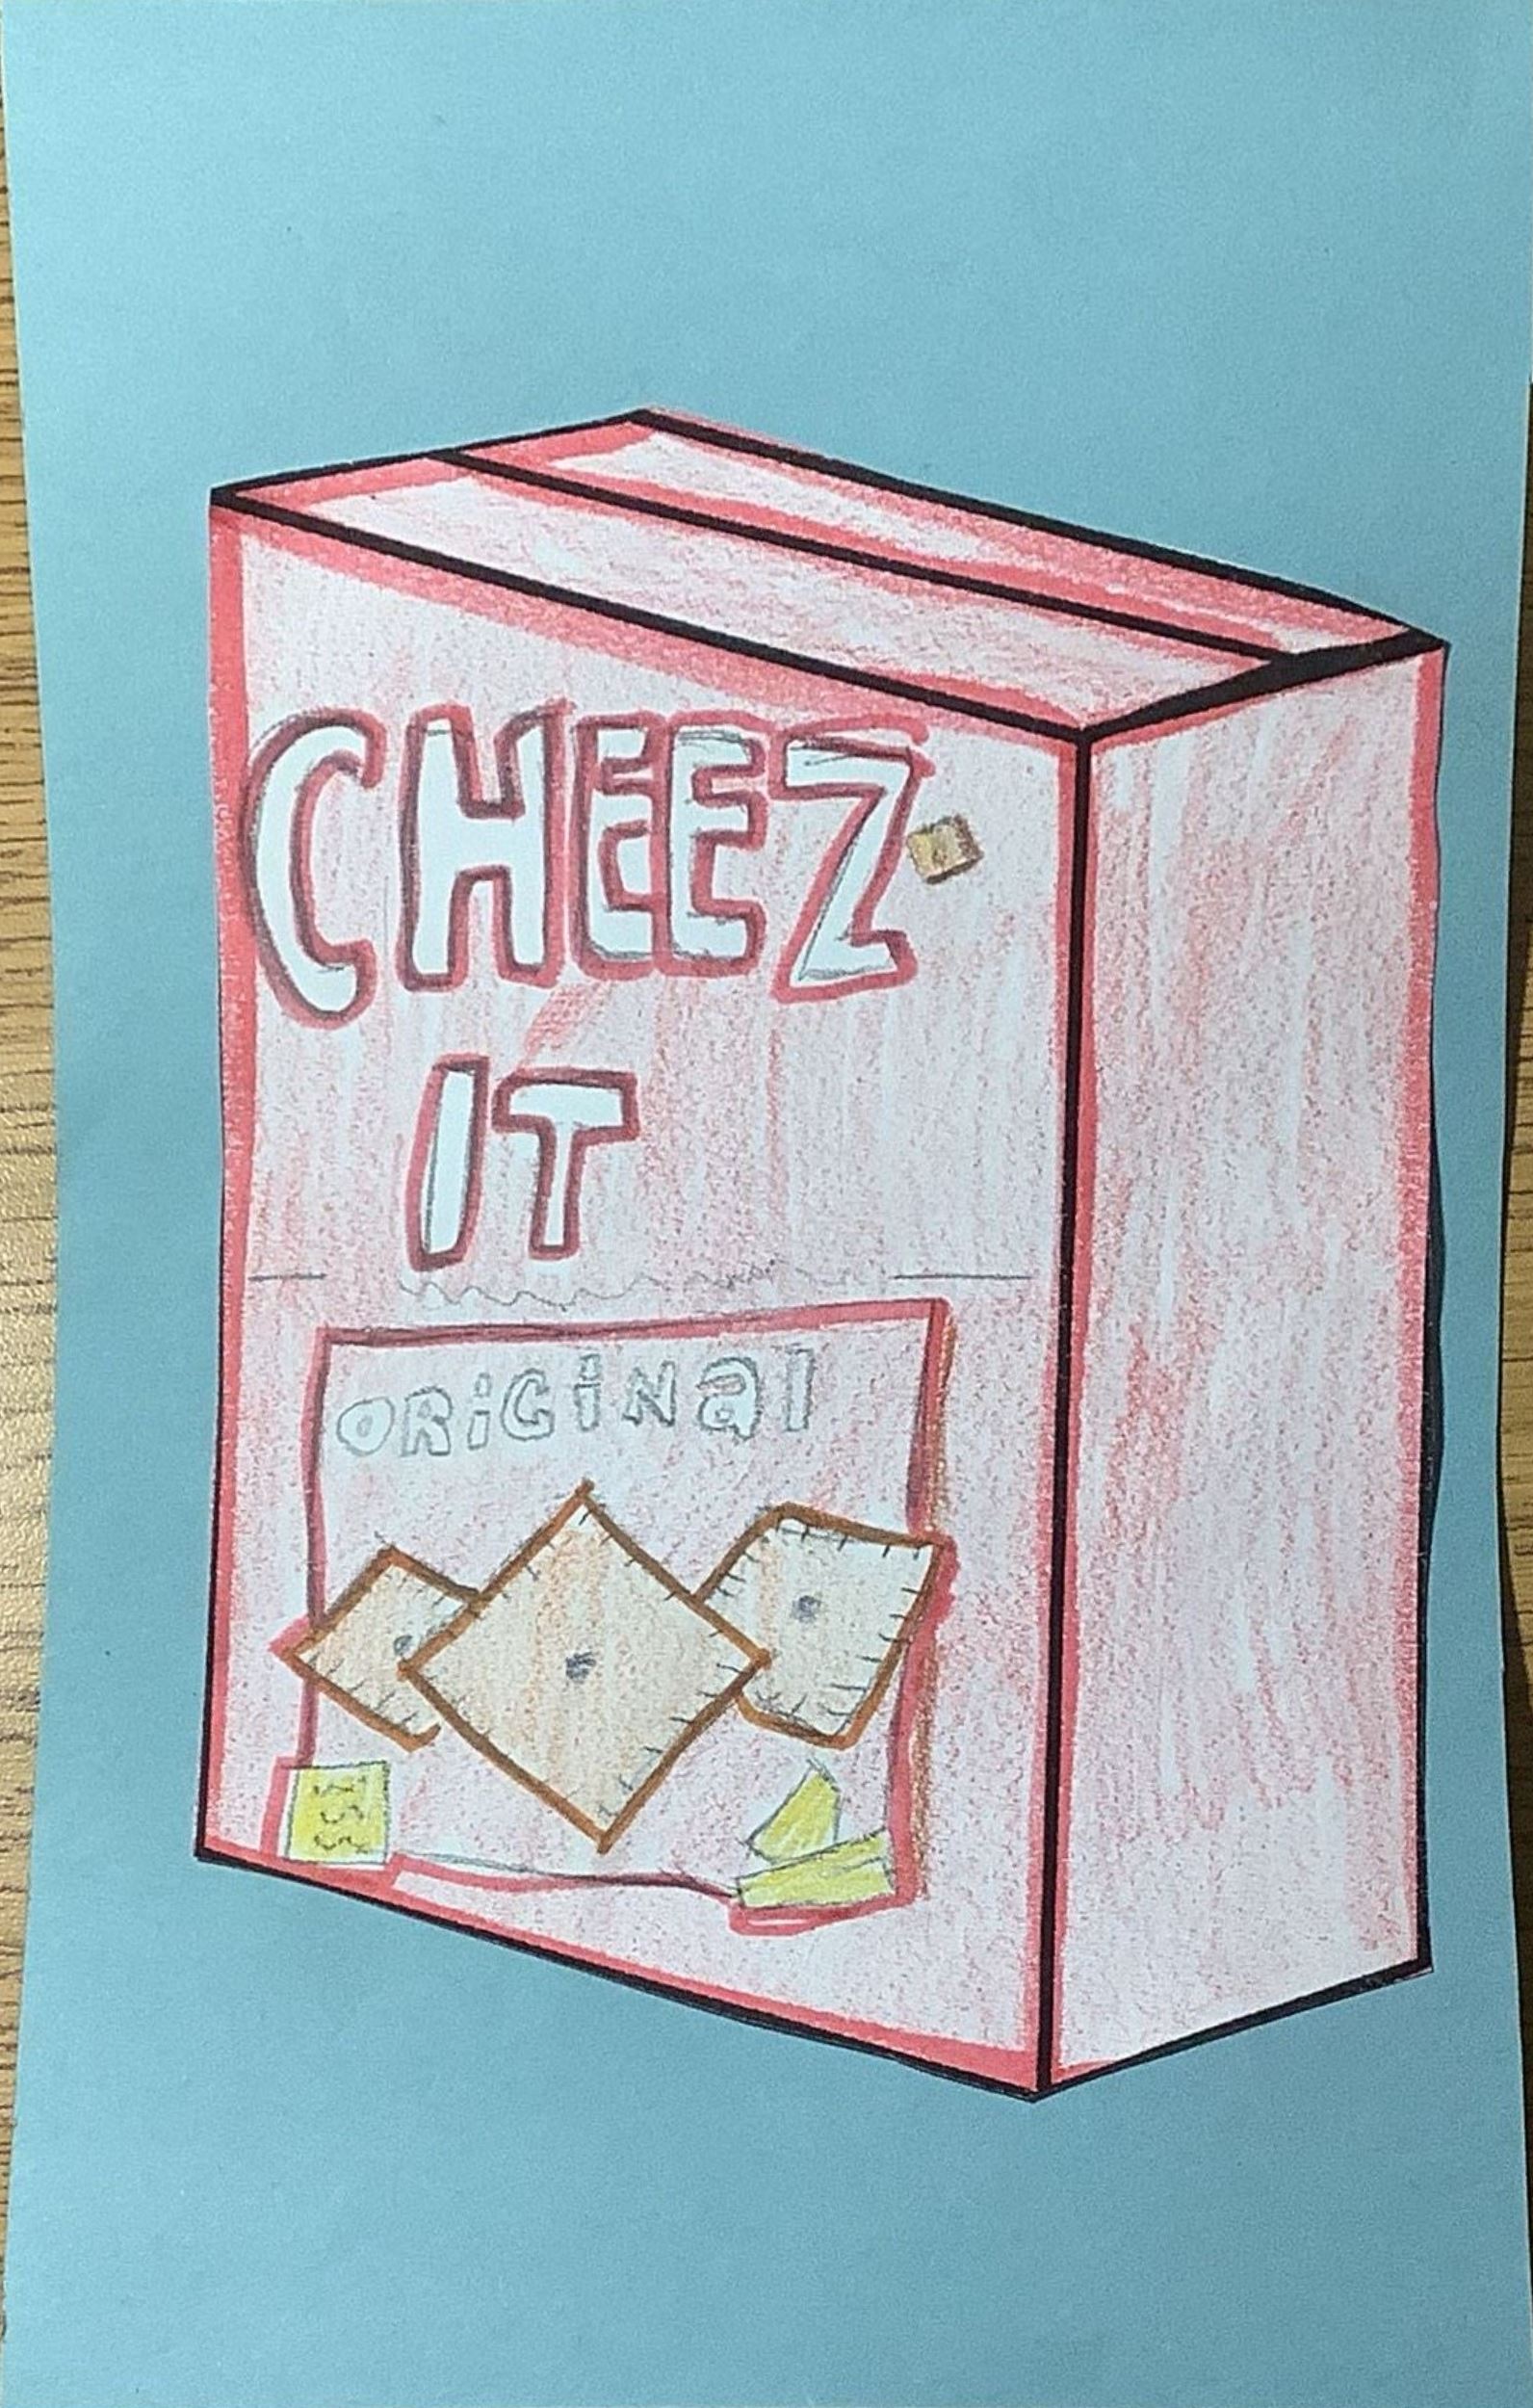 CHEEZ
IT
ORiGiNal